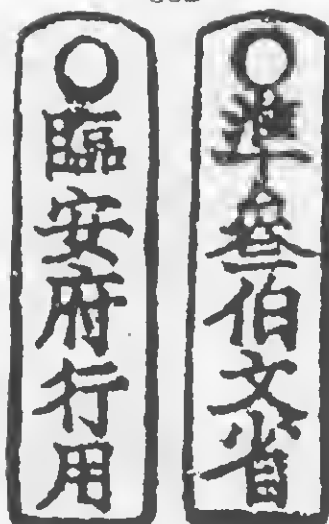 準叁伯文省
臨安府行用